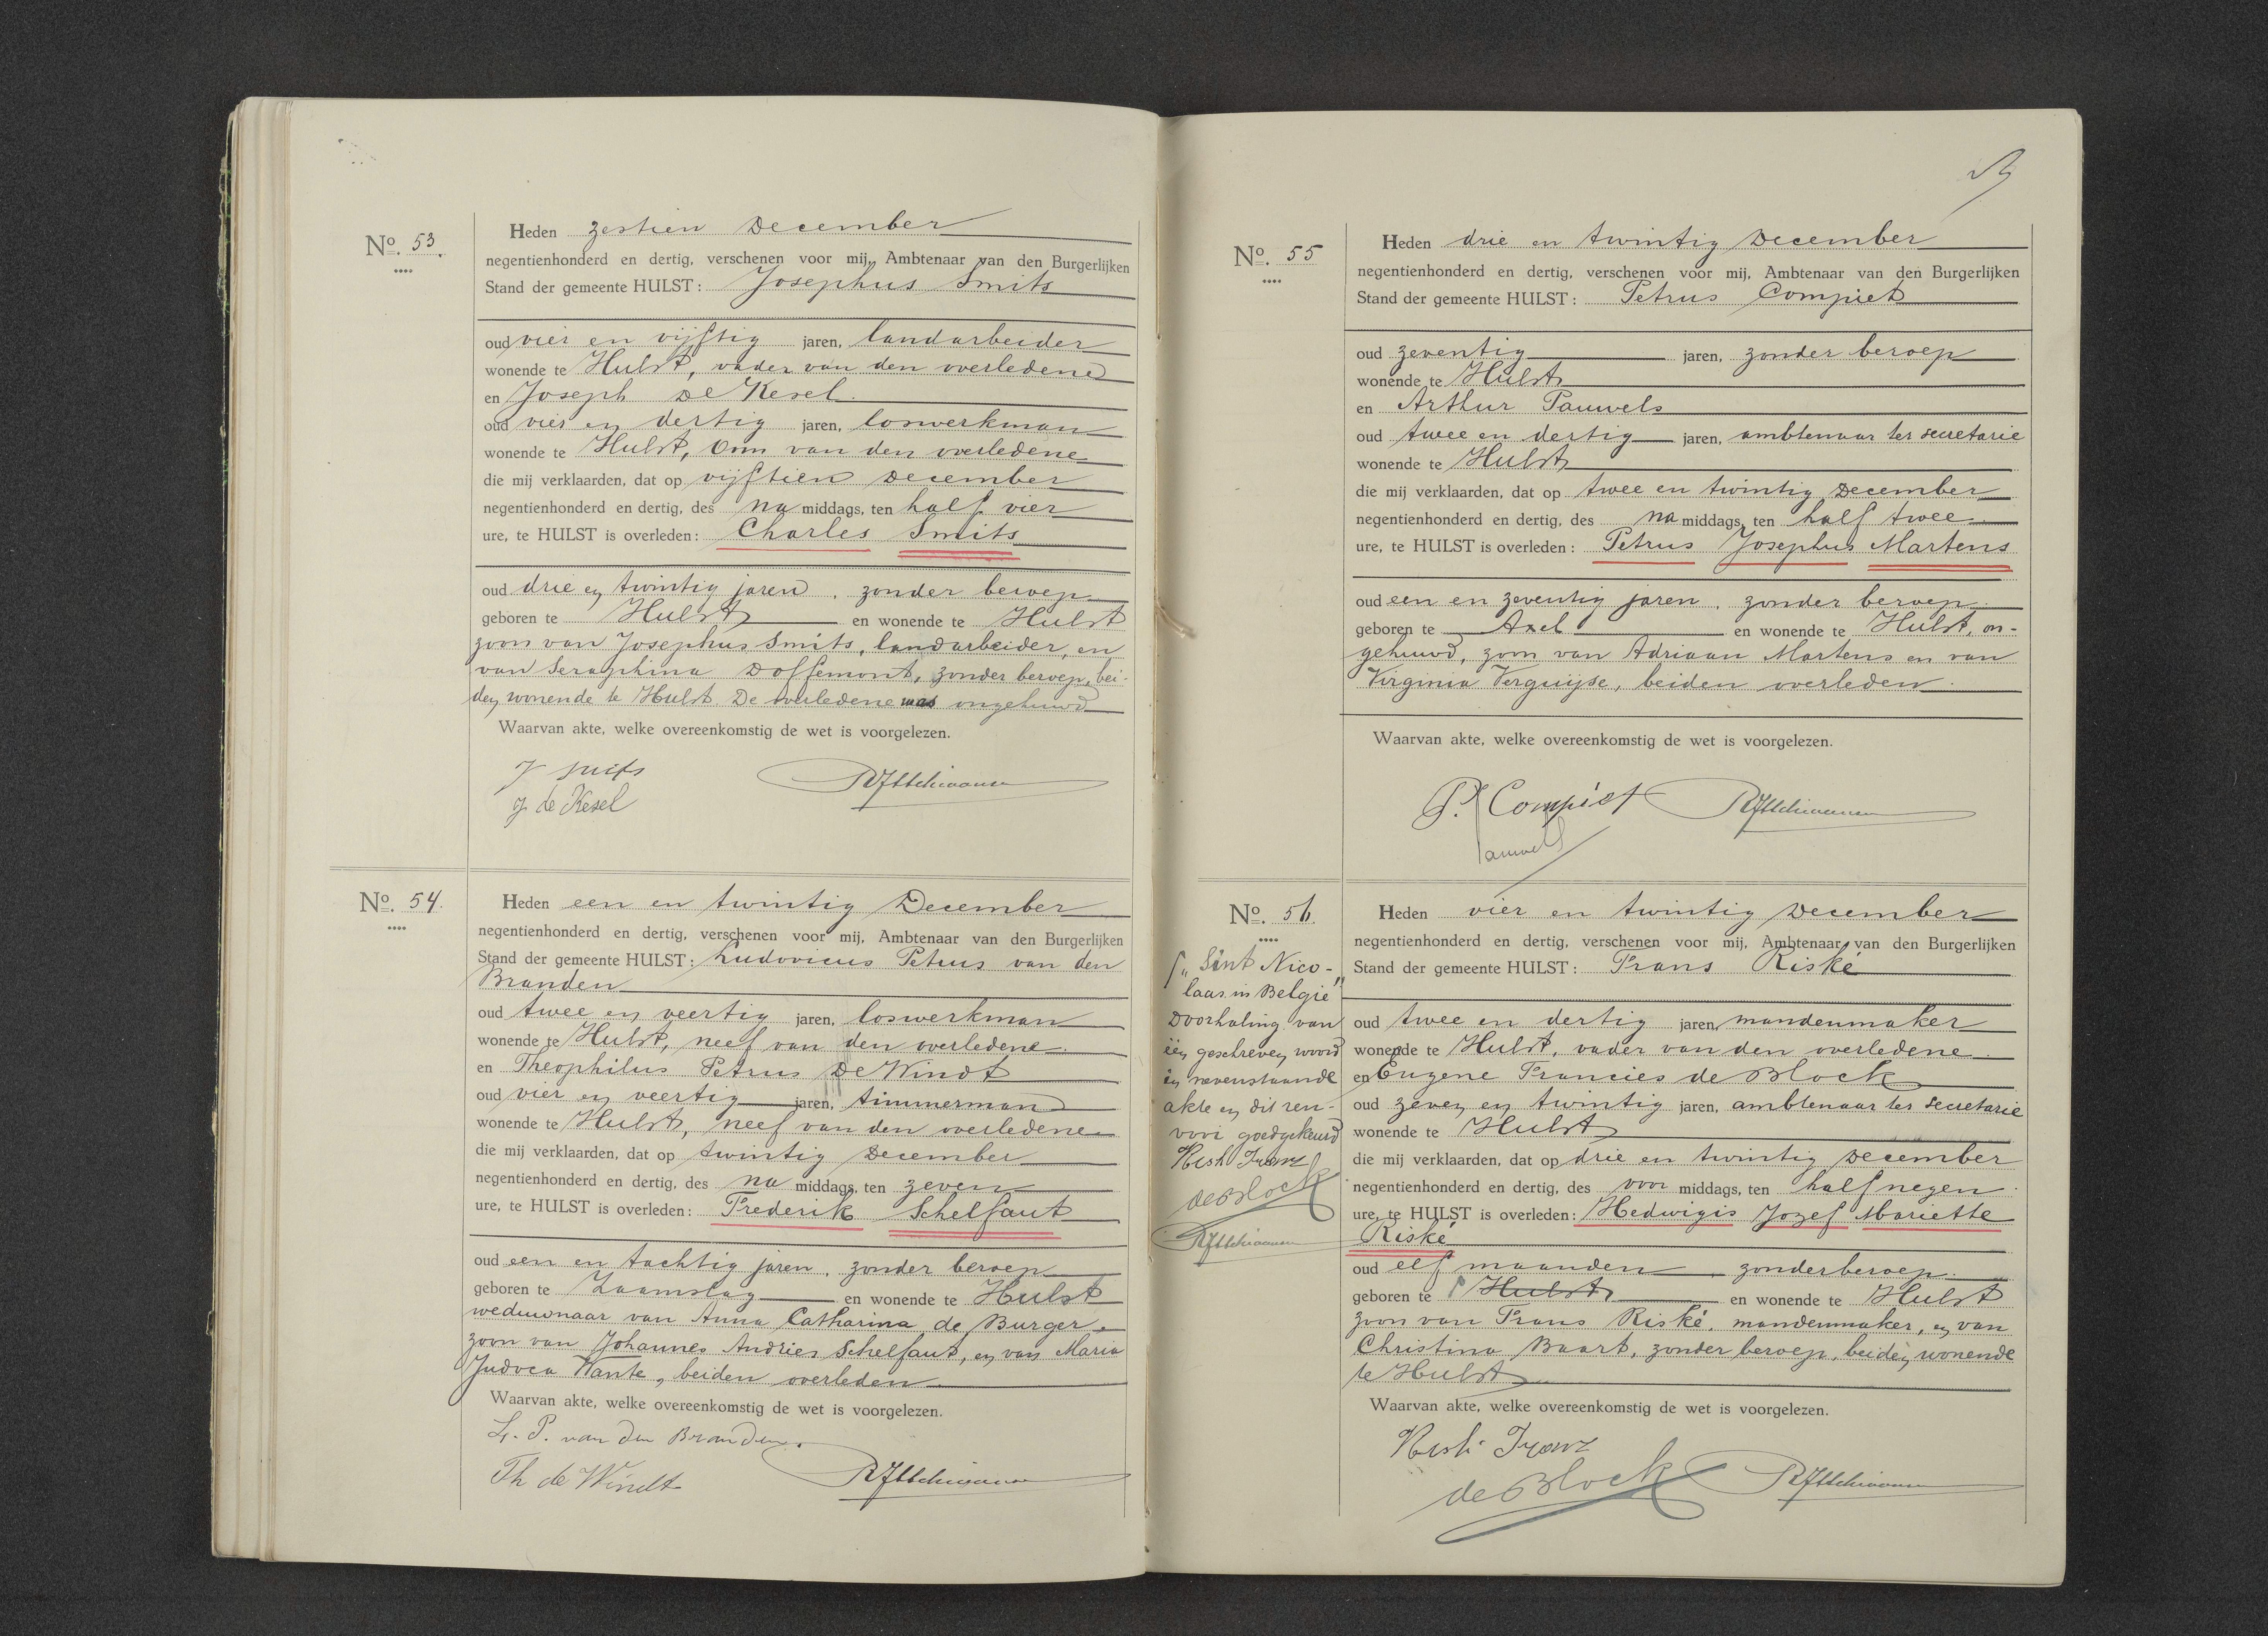 No. 53.
Heden zestien December
negentienhonderd en dertig, verschenen voor mij, Ambtenaar van den Burgerlijken
Stand der gemeente HULST: Josephus Smits
oud vier en vijftig jaren, landarbeider
wonende te Hulst, vader van den overledene
en Joseph De Kesel
oud vier en dertig jaren, loswerkman
wonende te Hulst, Oom van den overledene
die mij verklaarden, dat op vijftien December
negentienhonderd en dertig, des na middags, ten half vier
ure, te HULST is overleden: Charles Smits
oud drie en twintig jaren, zonder beroep
geboren te Hulst en wonende te Hulst
zoon van Josephus Smits, landarbeider, en
van Seraphina Doffemont, zonder beroep, bei-
den wonende te Hulst. De overledene was ongehuwd
Waarvan akte, welke overeenkomstig de wet is voorgelezen.
J smits
J. de Kesel
No. 54.
Heden een en twintig December
negentienhonderd en dertig, verschenen voor mij, Ambtenaar van den Burgerlijken
Stand der gemeente HULST: Ludovicus Petrus van den
Branden
oud twee en veertig jaren, loswerkman
wonende te Hulst, neef van den overledene
en Theophilus Petrus De Windt
oud vier en veertig jaren, timmerman
wonende te Hulst, neef van den overledene
die mij verklaarden, dat op twintig December
negentienhonderd en dertig, des na middags, ten zeven
ure, te HULST is overleden: Frederik Schelfaut
oud een en tachtig jaren, zonder beroep
geboren te Zaamslag en wonende te Hulst
weduwnaar van Anna Catharina de Burger,
zoon van Johannes Andries Schelfaut, en van Maria
Judoca Wante, beiden overleden.
Waarvan akte, welke overeenkomstig de wet is voorgelezen.
L. P. van den Branden.
Th de Windt
No. 55
Heden drie en twintig December
negentienhonderd en dertig, verschenen voor mij, Ambtenaar van den Burgerlijken
Stand der gemeente HULST: Petrus Compiet
oud zeventig jaren, zonder beroep
wonende te Hulst
en Arthur Pauwels
oud twee en dertig jaren, ambtenaar ter secretarie
wonende te Hulst
die mij verklaarden, dat op twee en twintig December
negentienhonderd en dertig, des na middags, ten half twee
ure, te HULST is overleden: Petrus Josephus Martens
oud een en zeventig jaren, zonder beroep
geboren te Axel en wonende te Hulst, on-
gehuwd, zoon van Adriaan Martens en van
Virginia Verguijse, beiden overleden.
Waarvan akte, welke overeenkomstig de wet is voorgelezen.
P. Compiet
Pauwels
No. 56.
„Sint Nico-
laas in België"
Doorhaling van
één geschreven woord
in nevenstaande
akte en dit ren-
vooi goedgekeurd
de Block
Heden vier en twintig December
negentienhonderd en dertig, verschenen voor mij, Ambtenaar van den Burgerlijken
Stand der gemeente HULST: Frans Riské
oud twee en dertig jaren, mandenmaker
wonende te Hulst, vader van den overledene
en Eugene Francies de Block
oud zeven en twintig jaren, ambtenaar ter secretarie
wonende te Hulst
die mij verklaarden, dat op drie en twintig December
negentienhonderd en dertig, des voor middags, ten half negen
ure, te HULST is overleden: Hedwigis Jozef Mariette
Riské
oud elf maanden, zonder beroep.
geboren te Hulst en wonende te Hulst
zoon van Frans Riské, mandenmaker, en van
Christina Baart, zonder beroep, beiden wonende
te Hulst
Waarvan akte, welke overeenkomstig de wet is voorgelezen.
de Block